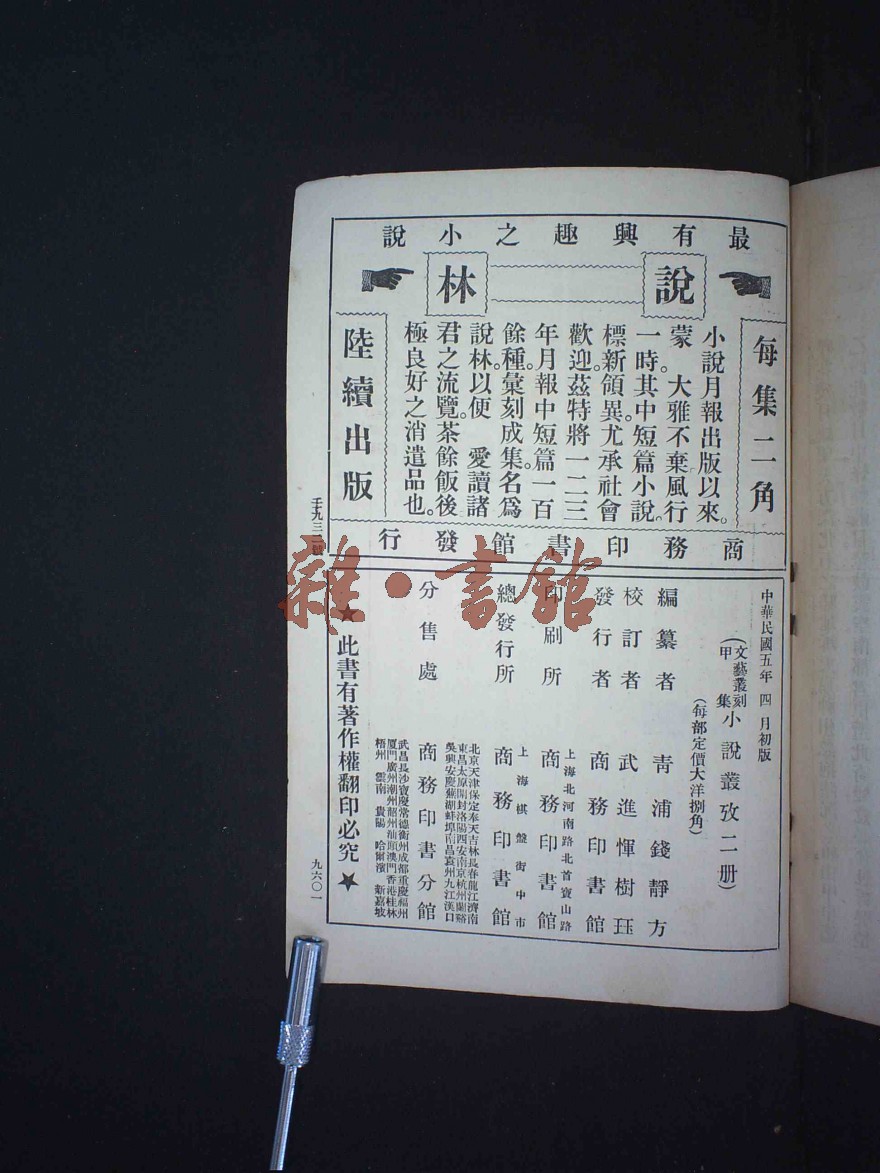 最有興趣之小說
說林
每集二角
小說月報出版以來。
蒙　大雅不棄風行
一時。其中短篇小說
標新領異。尤承社會
歡迎。茲特將一二三
年月報中短篇一百
餘種。彙刻成集。名爲
說林以便　愛讀諸
君之流覽。茶餘飯後
極良好之消遣品也。
陸續出版
商務印書館發行
壬九三二號
中華民國五年四月初版
（文藝叢刻甲集小說叢攷二册）
（每部定價大洋捌角）
編纂者　青浦錢靜方
校訂者　武進惲樹珏
發行者　商務印書館
印刷所　上海北河南路北首寶山路　商務印書館
總發行所　上海棋盤街中市　商務印書館
分售處　商務印書分館
北京天津保定奉天吉林長春龍江濟南
東昌太原開封洛陽西安南京杭州蘭谿
吳興安慶蕪湖蚌埠南昌袁州九江漢口
武昌長沙寶慶常德衡州成都重慶福州
廈門廣州潮州韶州汕頭澳門香港桂林
梧州　雲南　貴陽　哈爾濱　新嘉坡
★此書有著作權翻印必究★
九六〇一
雜·書館